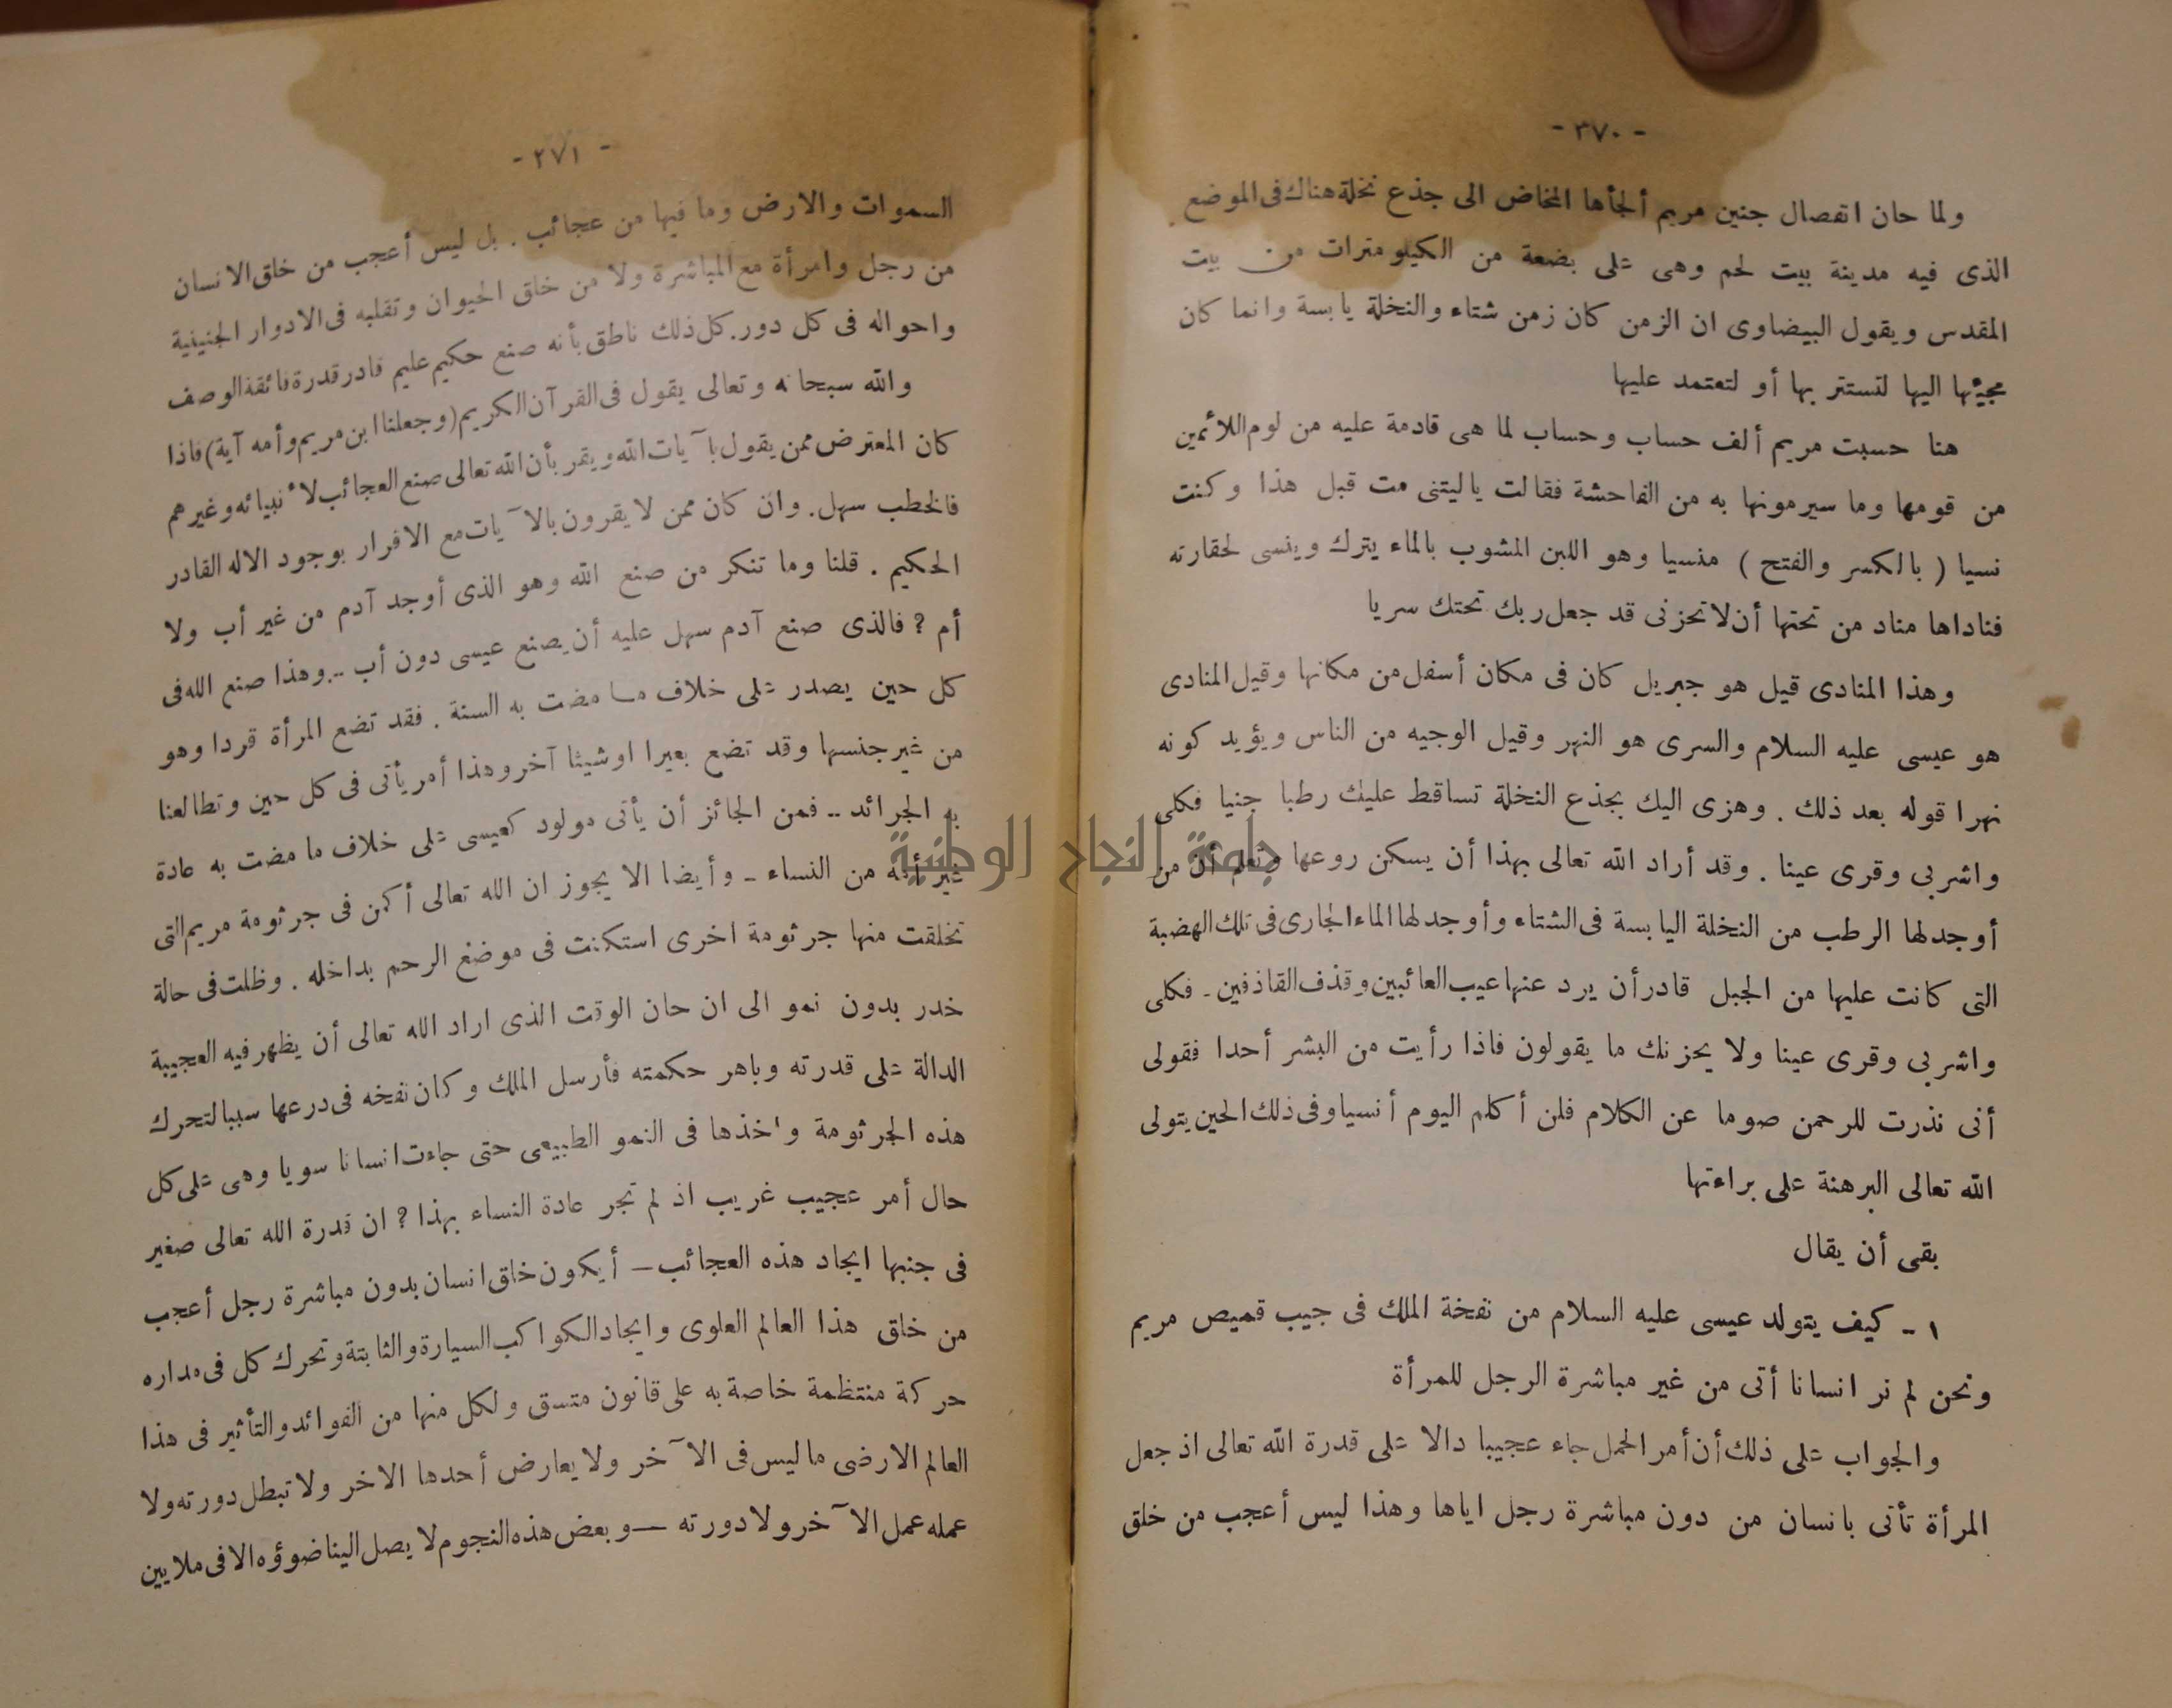 - ٣٧٠ -
ولما حان انفصال جنين مريم ألجأها المخاض الى جذع نخلة هناك فى الموضع
الذى فيه مدينة بيت لحم وهى على بضعة من الكيلو مترات من بيت
المقدس ويقول البيضاوى ان الزمن كان زمن شتاء والنخلة يابسة وانما كان
مجيئها اليها لتستتر بها أو لتعتمد عليها
هنا حسبت مريم ألف حساب وحساب لما هى قادمة عليه من لوم اللائمين
من قومها وما سيرمونها به من الفاحشة فقالت ياليتنى مت قبل هذا وكنت
نسيا ( بالكسر والفتح ) منسيا وهو اللبن المشوب بالماء يترك وينسى لحقارته
فناداها مناد من تحتها أن لا تحزنى قد جعل ربك تحتك سريا
وهذا المنادى قيل هو جبريل كان فى مكان أسفل من مكانها وقيل المنادى
هو عيسى عليه السلام والسرى هو النهر وقيل الوجيه من الناس ويؤيد كونه
نهرا قوله بعد ذلك . وهزى اليك بجذع النخلة تساقط عليك رطبا جنيا فكلى
واشربى وقرى عينا . وقد أراد الله تعالى بهذا أن يسكن روعها وتعلم أن من
أوجد لها الرطب من النخلة اليابسة فى الشتاء وأوجد لها الماء الجارى فى تلك الهضبة
التى كانت عليها من الجبل قادر أن يرد عنها عيب العائبين وقذف القاذفين - فكلى
واشربى وقرى عينا ولا يحزنك ما يقولون فاذا رأيت من البشر أحدا فقولى
أنى نذرت للرحمن صوما عن الكلام فلن أكلم اليوم أنسيا وفى ذلك الحين يتولى
الله تعالى البرهنة على براءتها
بقى أن يقال
١ - كيف يتولد عيسى عليه السلام من نفخة الملك فى جيب قميص مريم
ونحن لم نر انسانا أتى من غير مباشرة الرجل للمرأة
والجواب على ذلك أن أمر الحمل جاء عجيبا دالا على قدرة الله تعالى اذ جعل
المرأة تأتى بانسان من دون مباشرة رجل اياها وهذا ليس أعجب من خلق
- ٢٧١ -
السموات والارض وما فيها من عجائب . بل ليس أعجب من خلق الانسان
من رجل وامرأة مع المباشرة ولا من خلق الحيوان وتقلبه فى الادوار الجنينية
واحواله فى كل دور . كل ذلك ناطق بأنه صنع حكيم عليم قادر قدرة فائقة الوصف
والله سبحانه وتعالى يقول فى القرآن الكريم (وجعلنا ابن مريم وأمه آية) فاذا
كان المعترض ممن يقول بآيات الله ويقر بأن الله تعالى صنع العجائب لأنبيائه وغيرهم
فالخطب سهل . وان كان ممن لا يقرون بالآيات مع الاقرار بوجود الاله القادر
الحكيم . قلنا وما تنكر من صنع الله وهو الذى أوجد آدم من غير أب ولا
أم ؟ فالذى صنع آدم سهل عليه أن يصنع عيسى دون أب .. وهذا صنع الله فى
كل حين يصدر على خلاف ما مضت به السنة . فقد تضع المرأة قردا وهو
من غير جنسها وقد تضع بعيرا او شيئا آخر وهذا أمر يأتى فى كل حين وتطالعنا
به الجرائد .. فمن الجائز أن يأتى مولود كعيسى على خلاف ما مضت به عادة
غير أمه من النساء - وأيضا الا يجوز ان الله تعالى أكمن فى جرثومة مريم التى
تخلقت منها جرثومة اخرى استكنت فى موضع الرحم بداخله . وظلت فى حالة
خدر بدون نمو الى ان حان الوقت الذى اراد الله تعالى أن يظهر فيه العجيبة
الدالة على قدرته وباهر حكمته فأرسل الملك وكان نفخه فى درعها سببا لتحرك
هذه الجرثومة واخذها فى النمو الطبيعى حتى جاءت انسانا سويا وهى على كل
حال أمر عجيب غريب اذ لم تجر عادة النساء بهذا ؟ ان قدرة الله تعالى صغير
فى جنبها ايجاد هذه العجائب — أيكون خلق انسان بدون مباشرة رجل أعجب
من خلق هذا العالم العلوى وايجاد الكواكب السيارة والثابتة وتحرك كل فى مداره
حركة منتظمة خاصة به على قانون متسق ولكل منها من الفوائد والتأثير فى هذا
العالم الارضى ما ليس فى الآخر ولا يعارض أحدها الاخر ولا تبطل دورته ولا
عمله عمل الآخر ولا دورته — وبعض هذه النجوم لا يصل الينا ضوؤه الا فى ملايين
جامعة النجاح الوطنية